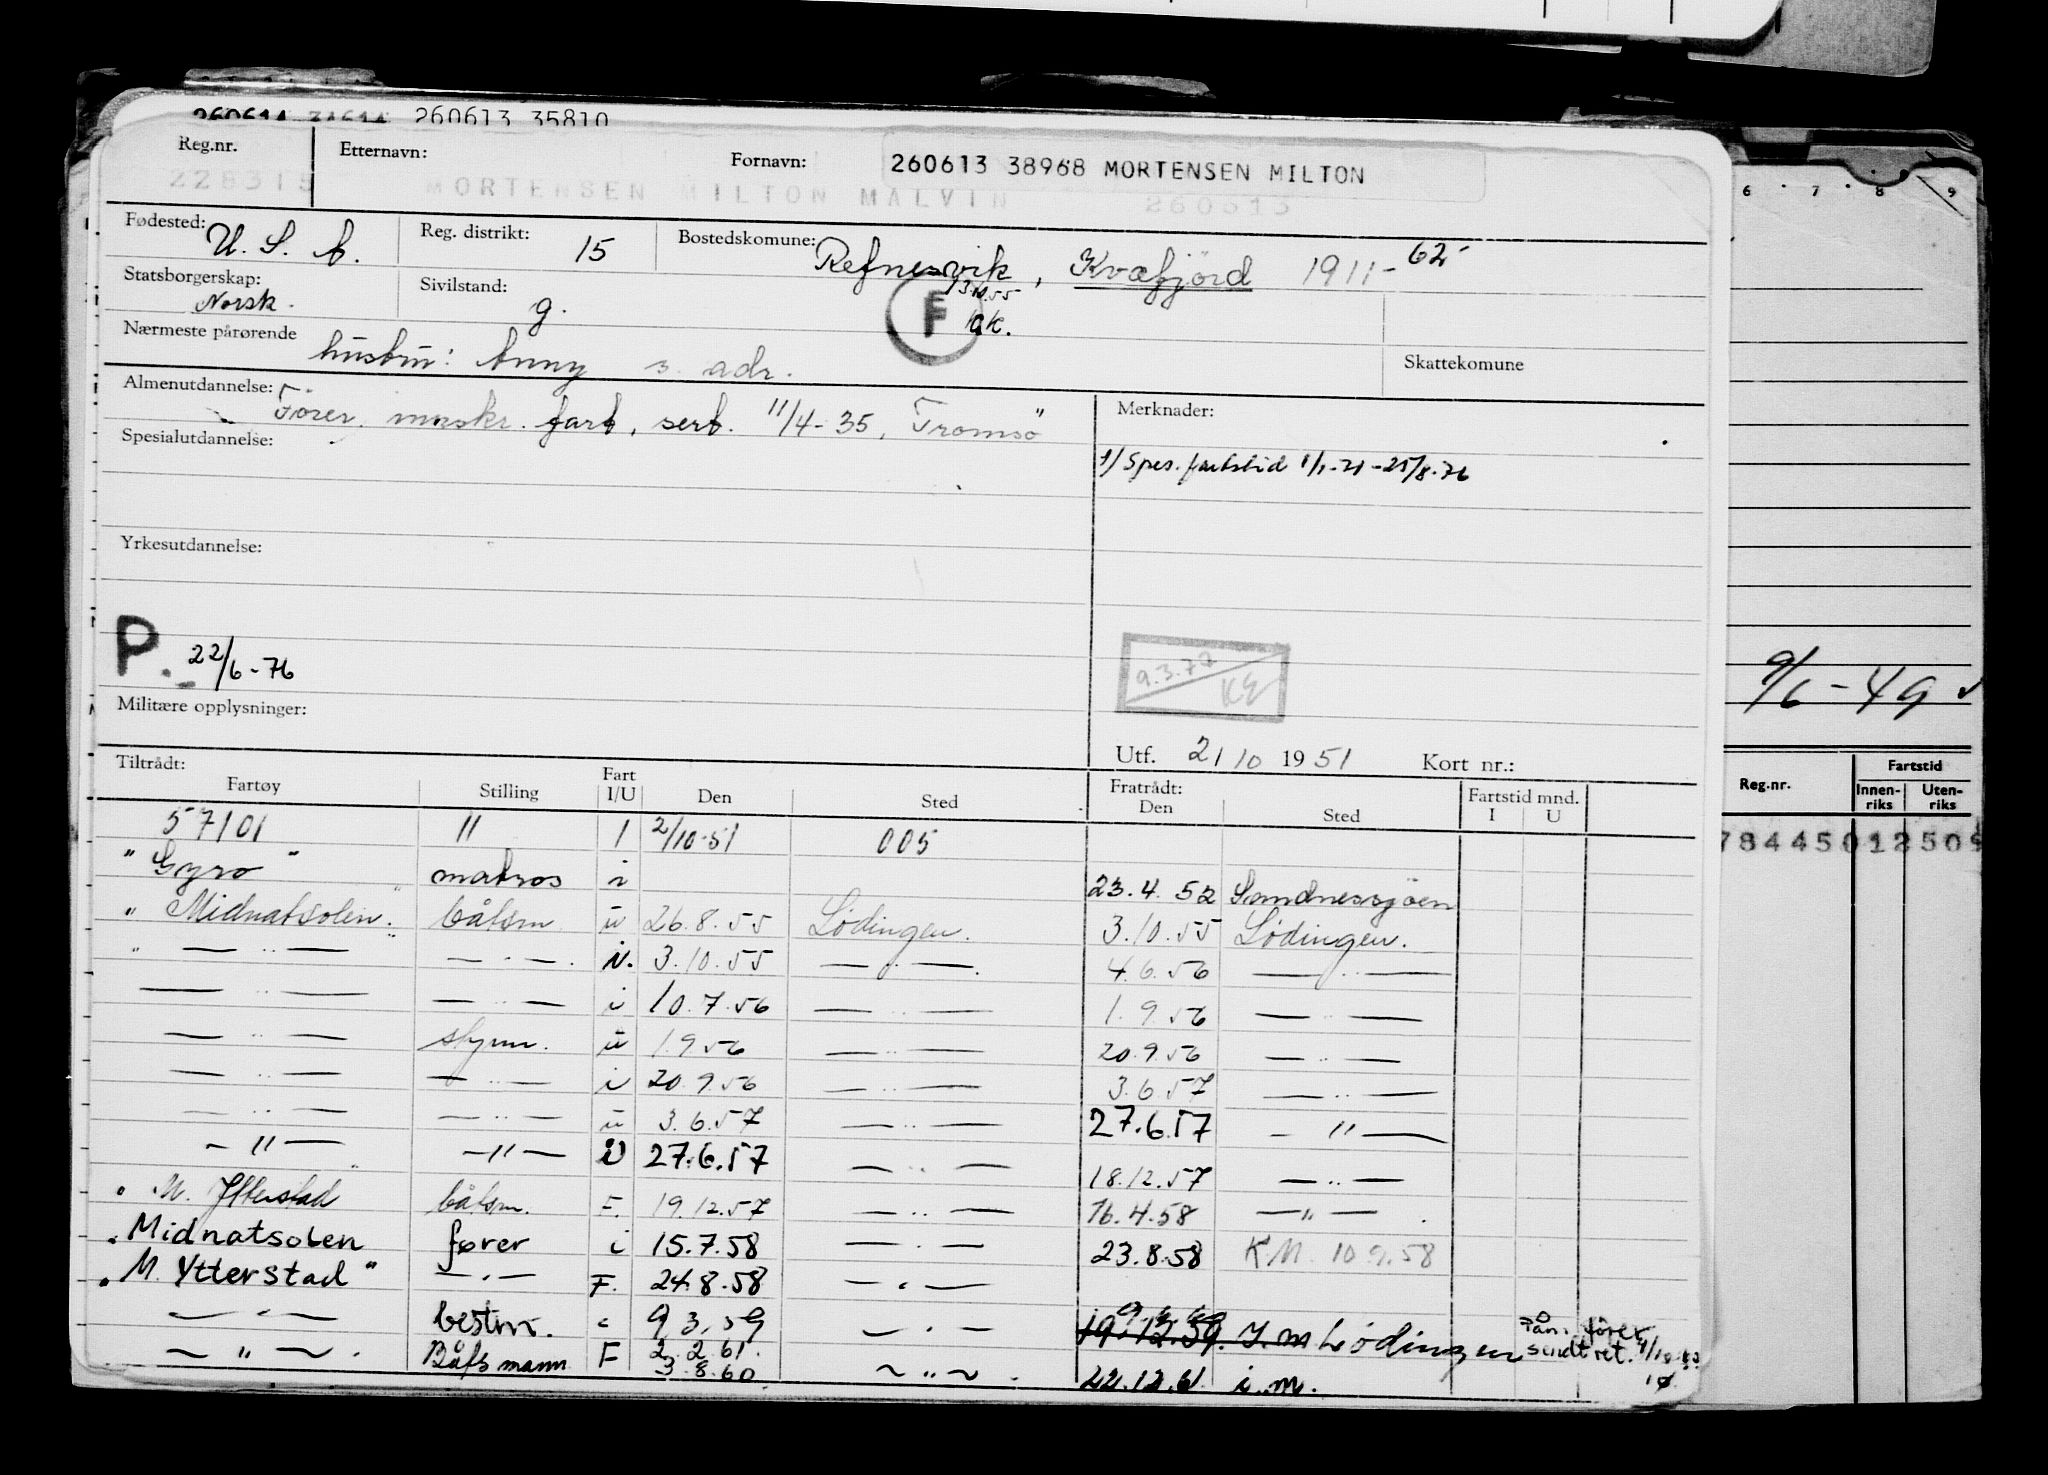 260613 35810
Reg.nr. Etternavn: Fornavn: 260613 38968 MORTENSEN MILTON
228315 MORTENSEN MILTON MALVIN 260613
Fødested: U. S. A. Reg. distrikt: 15 Bostedskomune: Refnesvik, Kvæfjörd 1911-62
Statsborgerskap: Norsk. Sivilstand: g. F
Nærmeste pårørende hustru: Anny s. adr. Skattekomune
Almenutdannelse: Förer. maskr. fart. sert. 11/4-35, Tromsö Merknader:
Spesialutdannelse:
1/ Spes. fartstid 1/1-71-25/8-76
Yrkesutdannelse:
P. 22/6-76
9.3.72 KE
9/6-49
Militære opplysninger:
Utf. 2/10 1951 Kort nr.:
Tiltrådt: Fratrådt:
Fartøy Stilling Fart I/U Den Sted Den Sted Fartstid mnd. I U
Reg.nr. Fartstid Innen-riks Uten-riks
57101 11 1 2/10-51 005
784450125
"Gyro" matros i 23.4.52 Sandnessjöen
" Midnatsolen" båtsm ū 26.8.55 Lödingen. 3.10.55 Lödingen.
" — " — — " — . N. 3.10.55 — " — . 4.6.56 — " —
— " — — " — i 10.7.56 — " — 1.9.56 — " —
— " — styrm. ū 1.9.56 — " — 20.9.56 — " —
— " — — " — i 20.9.56 — " — 3.6.57 — " —
— " — — " — ū 3.6.57 — " — 27.6.57 — " —
— " — — " — 27.6.57 — " — 18.12.57 — " —
" M. Ytterstad båtsm. F. 19.12.57 — " — 16.4.58 — " —
"Midnatsolen fører i 15.7.58 — " — 23.8.58 K M. 10.9.58
"M. Ytterstad" — " — F. 24.8.58 — " —
— " — bestm. 9.3.59 — " — 19.12.59. I.m Lödingen
— " — . Båtsmann F 2.2.61. 3.8.60 — " — . 22.12.61. i.m.